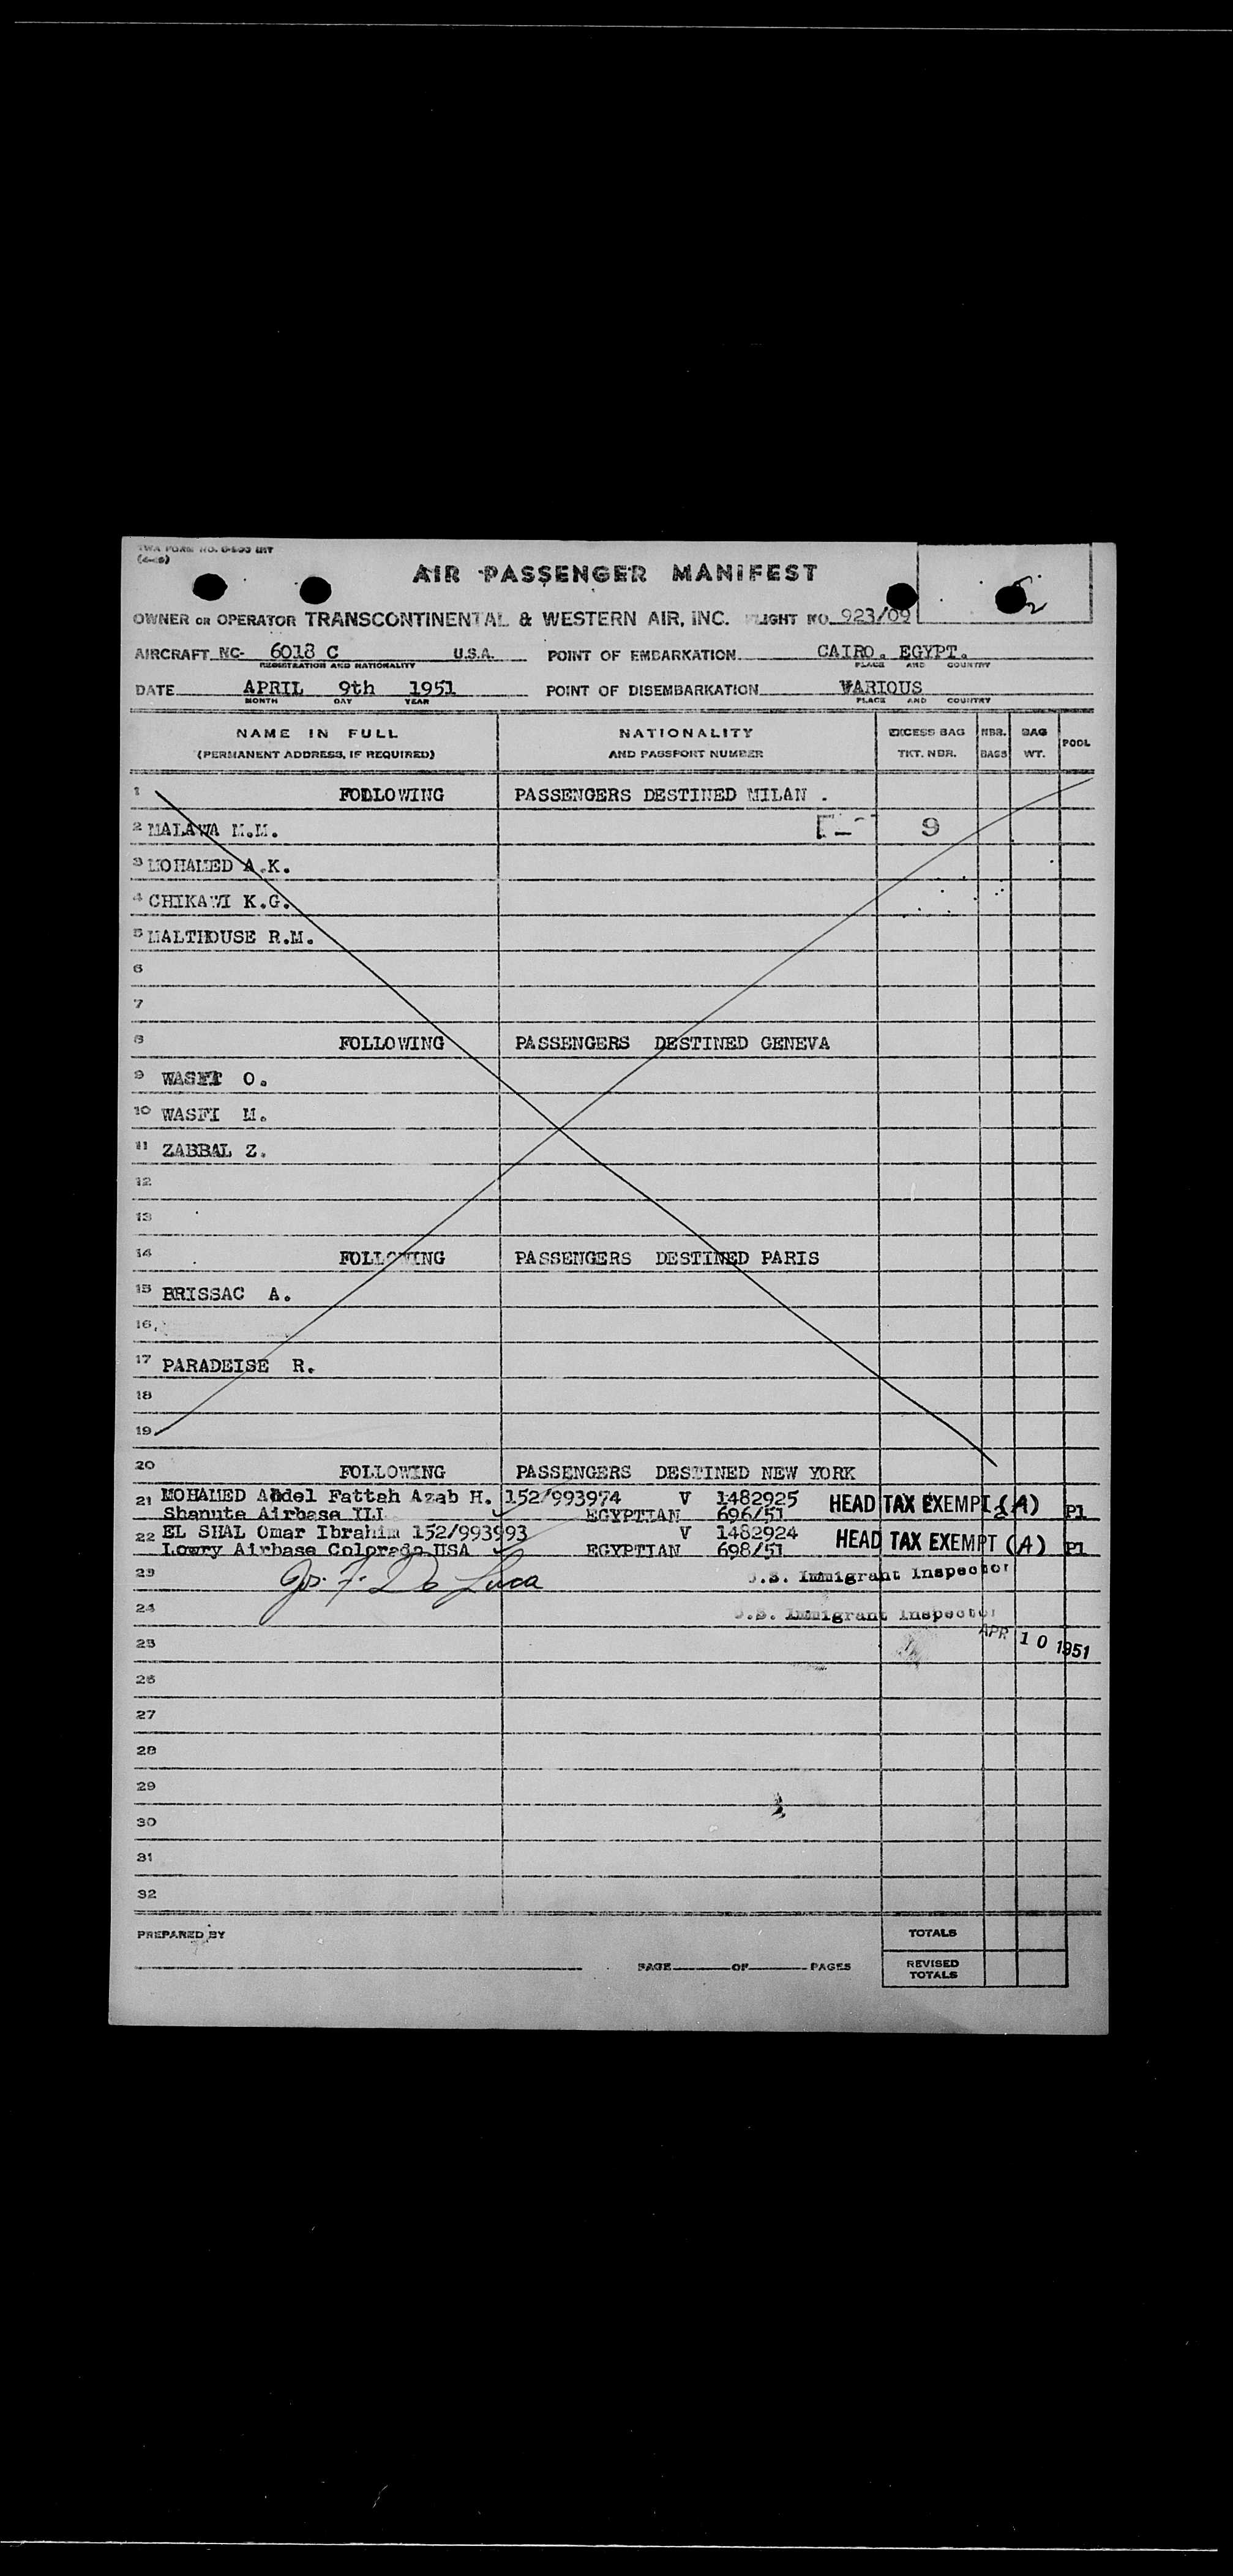 AIR PASSENGER MANIFEST
OWNER OR OPERATOR TRANSCONTINENTAL & WESTERN AIR, INC. FLIGHT NO. 923/09
AIRCRAFT NC- 6018 C U.S.A. POINT OF EMBARKATION CAIRO. EGYPT.
REGISTRATION AND NATIONALITY PLACE AND COUNTRY
DATE APRIL 9th 1951 POINT OF DISEMBARKATION VARIOUS
MONTH DAY YEAR PLACE AND COUNTRY
NAME IN FULL NATIONALITY EXCESS BAG NBR. BAG PODL
(PERMANENT ADDRESS, IF REQUIRED) AND PASSPORT NUMBER TKT. NBR. BAGS WT.
1 FOLLOWING PASSENGERS DESTINED MILAN .
2 MALAWA M.M. 9
3 MOHAMED A.K.
4 CHIKAWI K.G.
5 MALTHOUSE R.M.
6
7
8 FOLLOWING PASSENGERS DESTINED GENEVA
9 WASFI O.
10 WASFI M.
11 ZABBAL Z.
12
13
14 FOLLOWING PASSENGERS DESTINED PARIS
15 BRISSAC A.
16
17 PARADEISE R.
18
19
20 FOLLOWING PASSENGERS DESTINED NEW YORK
21 MOHAMED Abdel Fattah Azab H. 152/993974 V 1482925 HEAD TAX EXEMPT (A) P1
Shanute Airbase ILL EGYPTIAN 696/51
22 EL SHAL Omar Ibrahim 152/993993 V 1482924 HEAD TAX EXEMPT (A) P1
Lowry Airbase Colorado USA EGYPTIAN 698/51
23 Jos. F. De Luca U.S. Immigrant Inspector
24 U.S. Immigrant Inspector
25 APR 10 1951
26
27
28
29
30
31
32
PREPARED BY TOTALS
PAGE OF PAGES REVISED
TOTALS